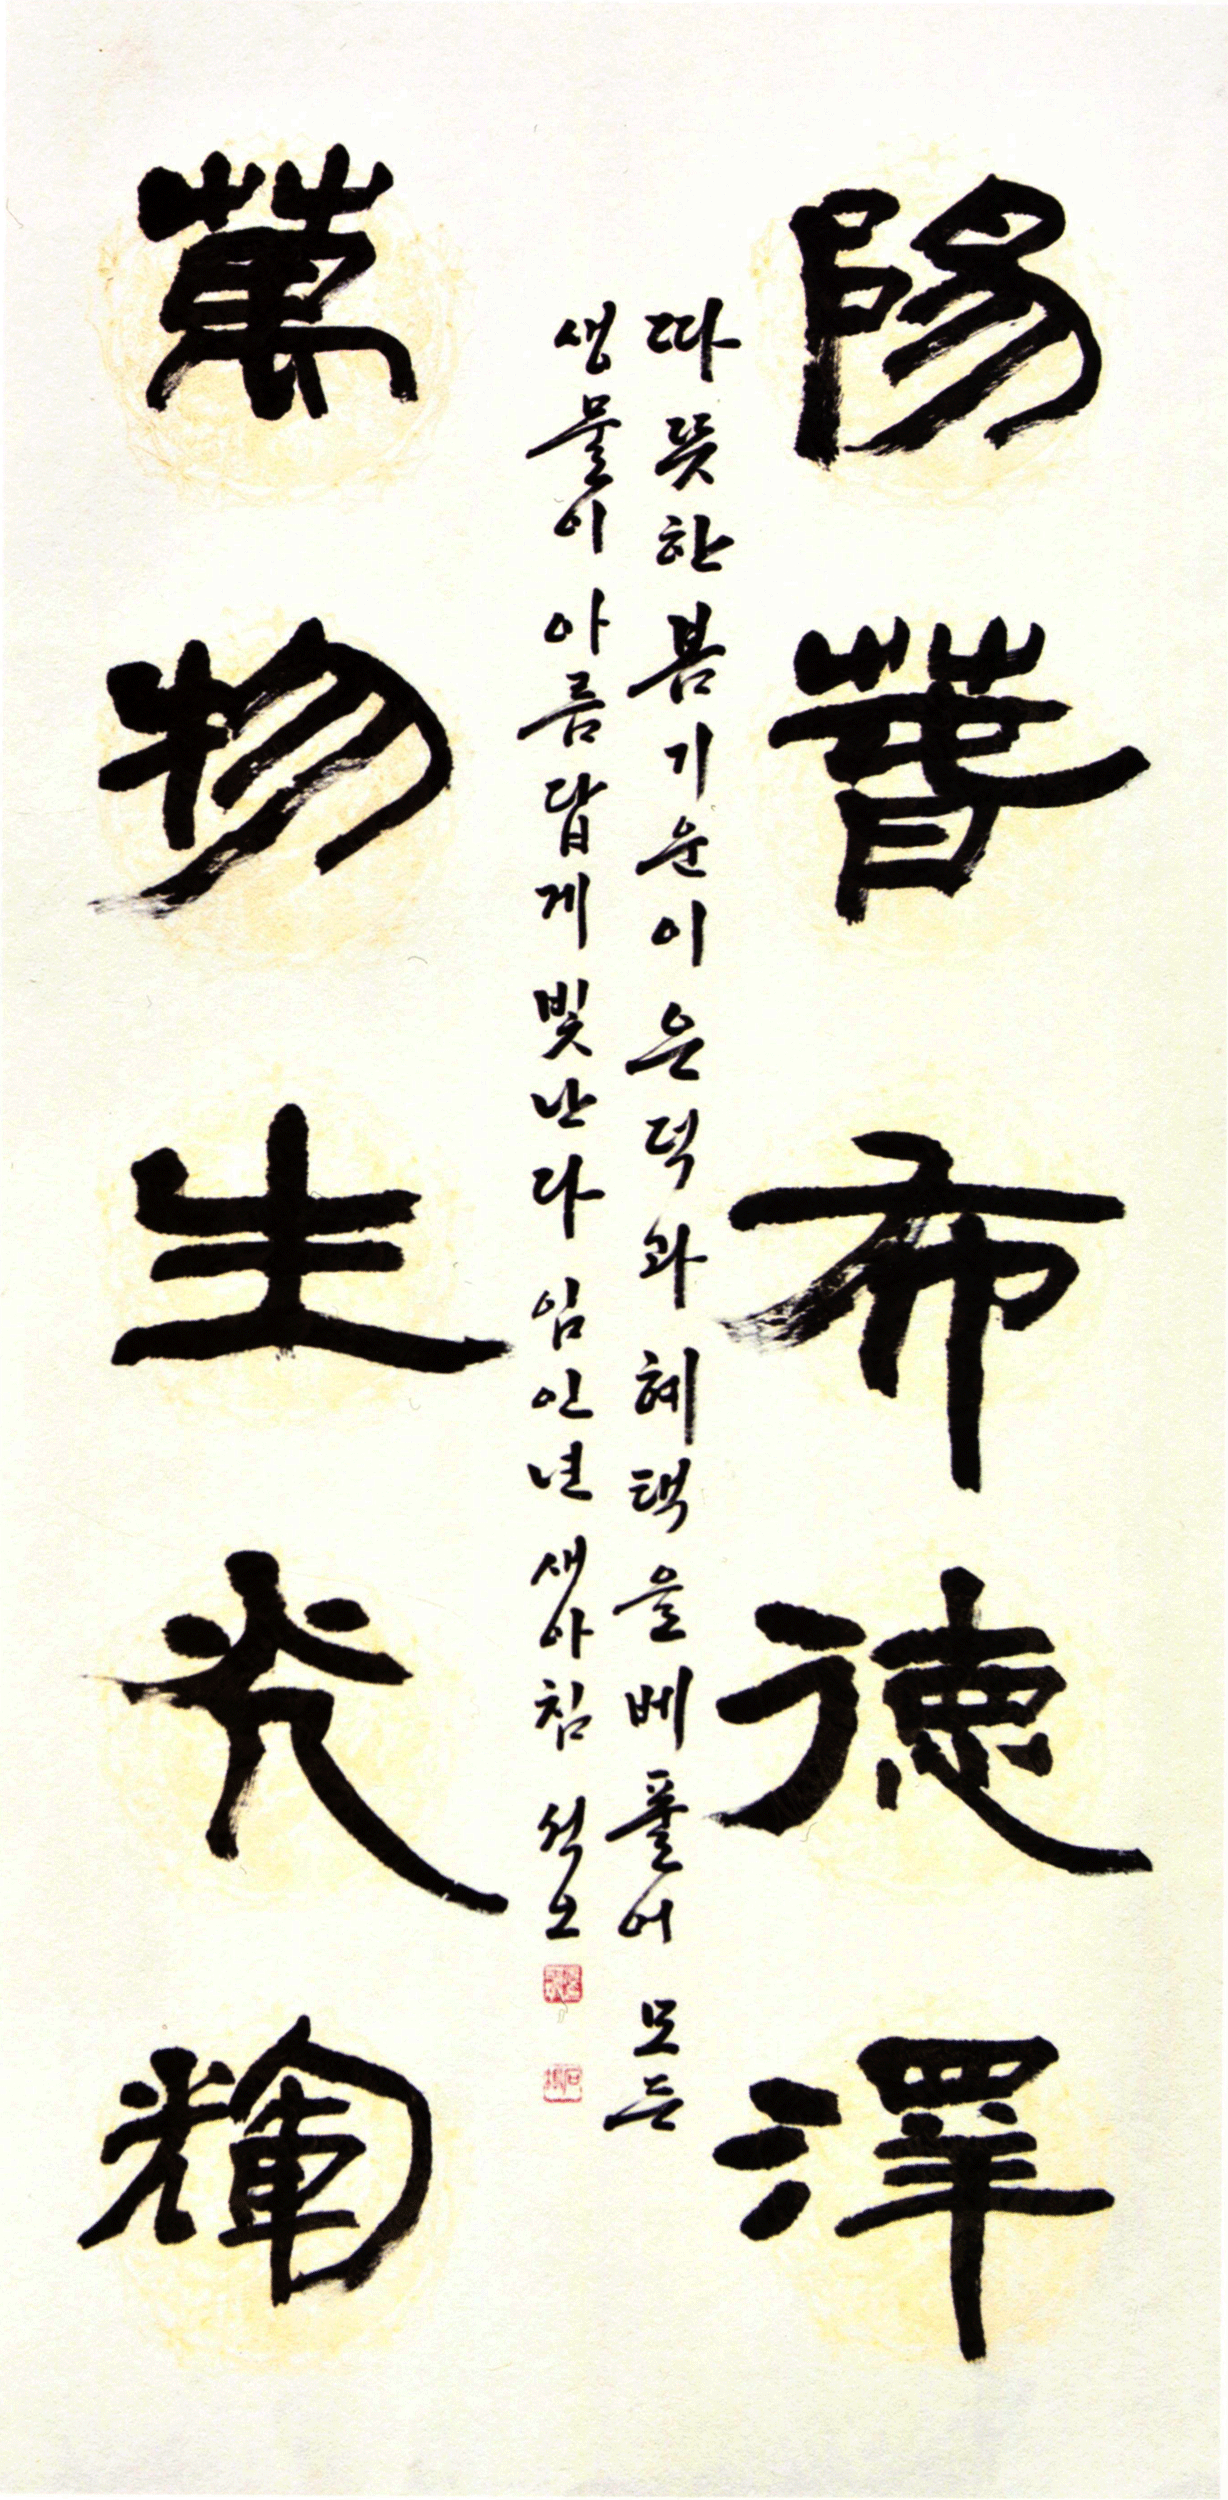 陽春布德澤
따뜻한 봄기운이 은덕과 혜택을 베풀어 모든
생물이 아름답게 빛난다 임인년 새아침 석오
萬物生光輝